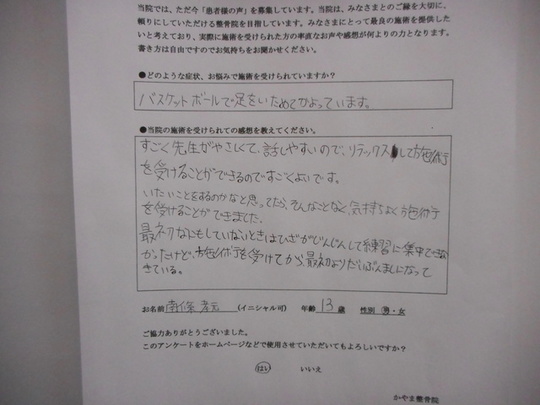 当院では、ただ今「患者様の声」を募集しています。当院は、みなさまとのご縁を大切に、
頼りにしていただける整骨院を目指しています。みなさまにとって最良の施術を提供した
いと考えており、実際に施術を受けられた方の率直なお声や感想が何よりの力となります。
書き方は自由ですのでお気持ちをお聞かせください。
●どのような症状、お悩みで施術を受けられていますか?
バスケットボールで足をいためてかよっています。
●当院の施術を受けられての感想を教えてください。
すごく先生がやさしくて、話しやすいので、リラックスして施術
を受けることができるのですごくよいです。
いたいことをするのかなと思ってたら、そんなことなく、気持ちよく施術
を受けることができました。
最初なにもしていないときはひざがじんじんして練習に集中できな
かったけど、施術を受けてから最初よりだいぶんましになって
きている。
お名前 南條 孝 (イニシャル可) 年齢 13 歳 性別 男・女
ご協力ありがとうございました。
このアンケートをホームページなどで使用させていただいてもよろしいですか?
はい いいえ
かやま整骨院